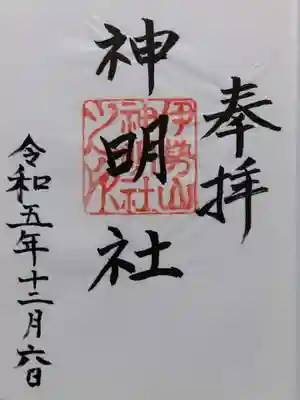 奉拝
神明社
伊勢山
神明社
之印
令和五年十二月六日